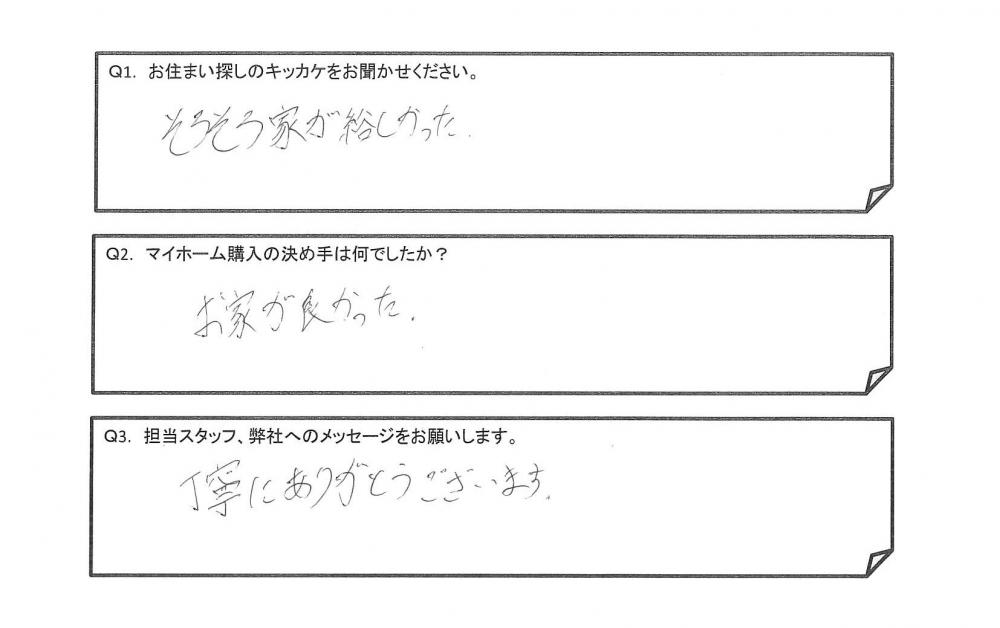 Q1. お住まい探しのキッカケをお聞かせください。
そろそろ家が欲しかった.
Q2. マイホーム購入の決め手は何でしたか？
お家が良かった.
Q3. 担当スタッフ、弊社へのメッセージをお願いします。
丁寧にありがとうございます.